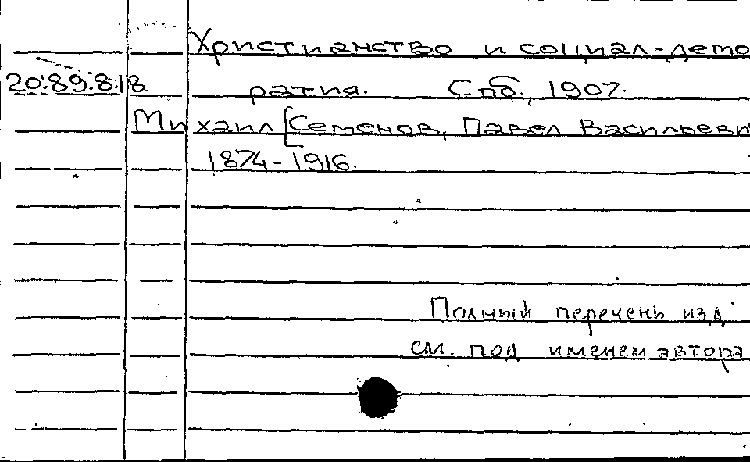 Христианство и социал-демо
20.89.8.18 ратия. Спб., 1907.
Михаил [Семенов, Павел Васильеви
1874-1916.
Полный перечень изд.
см. под именем автора